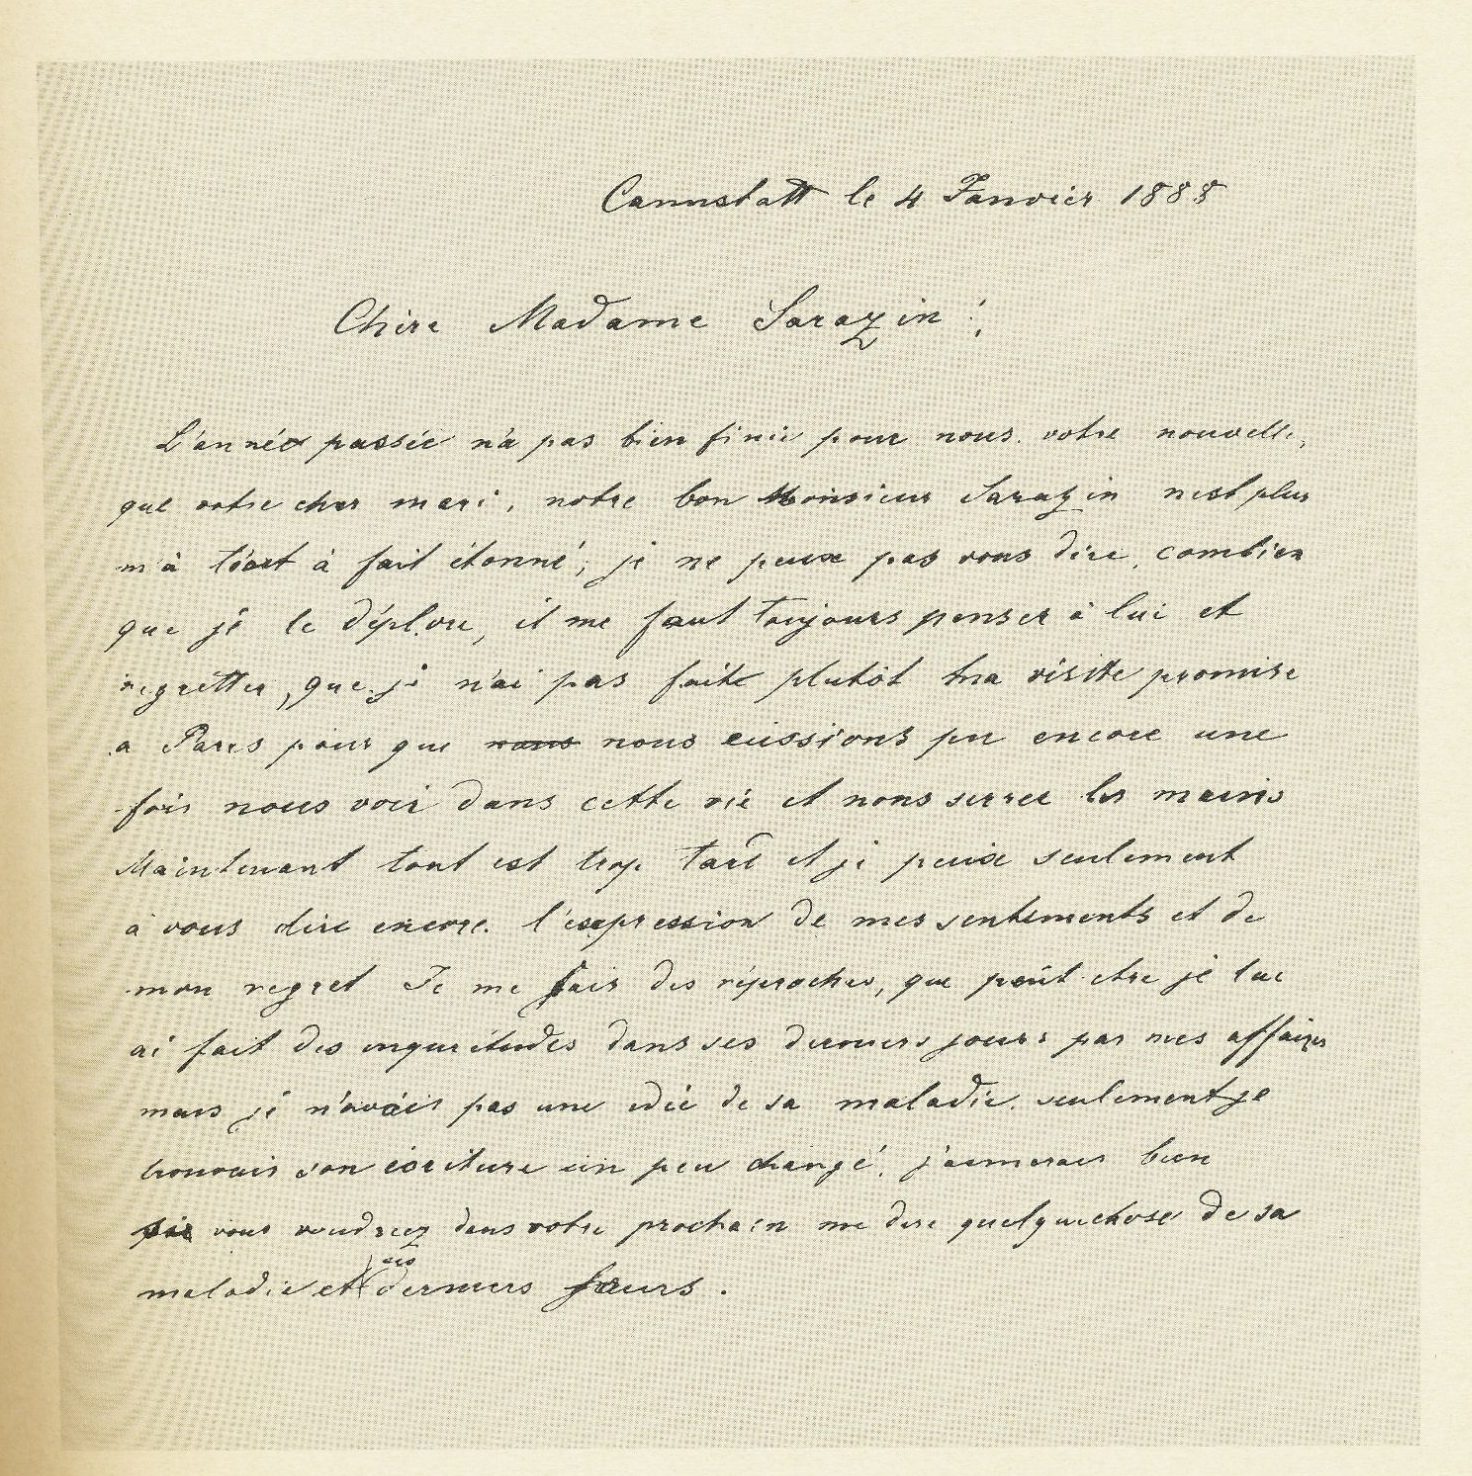 Cannstatt le 4 Janvier 1888
Chère Madame Sarazin!,
L'année passée n'a pas bien finie pour nous. votre nouvelle,
que votre cher mari, notre bon Monsieur Sarazin nest plus
m'à tout à fait étonné, je ne peux pas vous dire, combien
que je le déplore, il me faut toujours penser à lui et
regrètter, que je n'ai pas faite plutôt ma visitte promise
a Paris pour que nous nous eussions pu encore une
fois nous voir dans cette vie et nous serrer les mains
Maintenant tout est trop tard et je peux seulement
à vous dire encore. l'expression de mes sentements et de
mon regret Je me fais des réproches, que peût-etre je lui
ai fait des inquiétudes dans ses derniers jours par mes affaires
mais je n'avais pas une idée de sa maladie. seulement je
trouvais son écriture un peu changé, j'aimerais bien
vous voudrez dans votre prochain me dire quelquechose de sa
maladie et ses derniers jours.